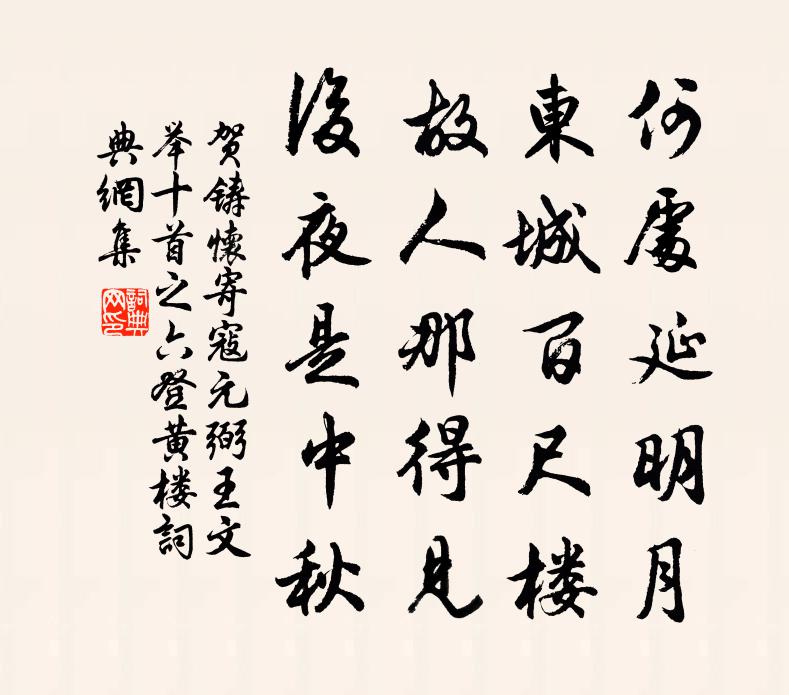 何處延明月
東城百尺楼
故人那得見
後夜是中秋
贺鑄懷寄寇元弼王文
举十首之六登黄楼詞
典網集
詞典
网印